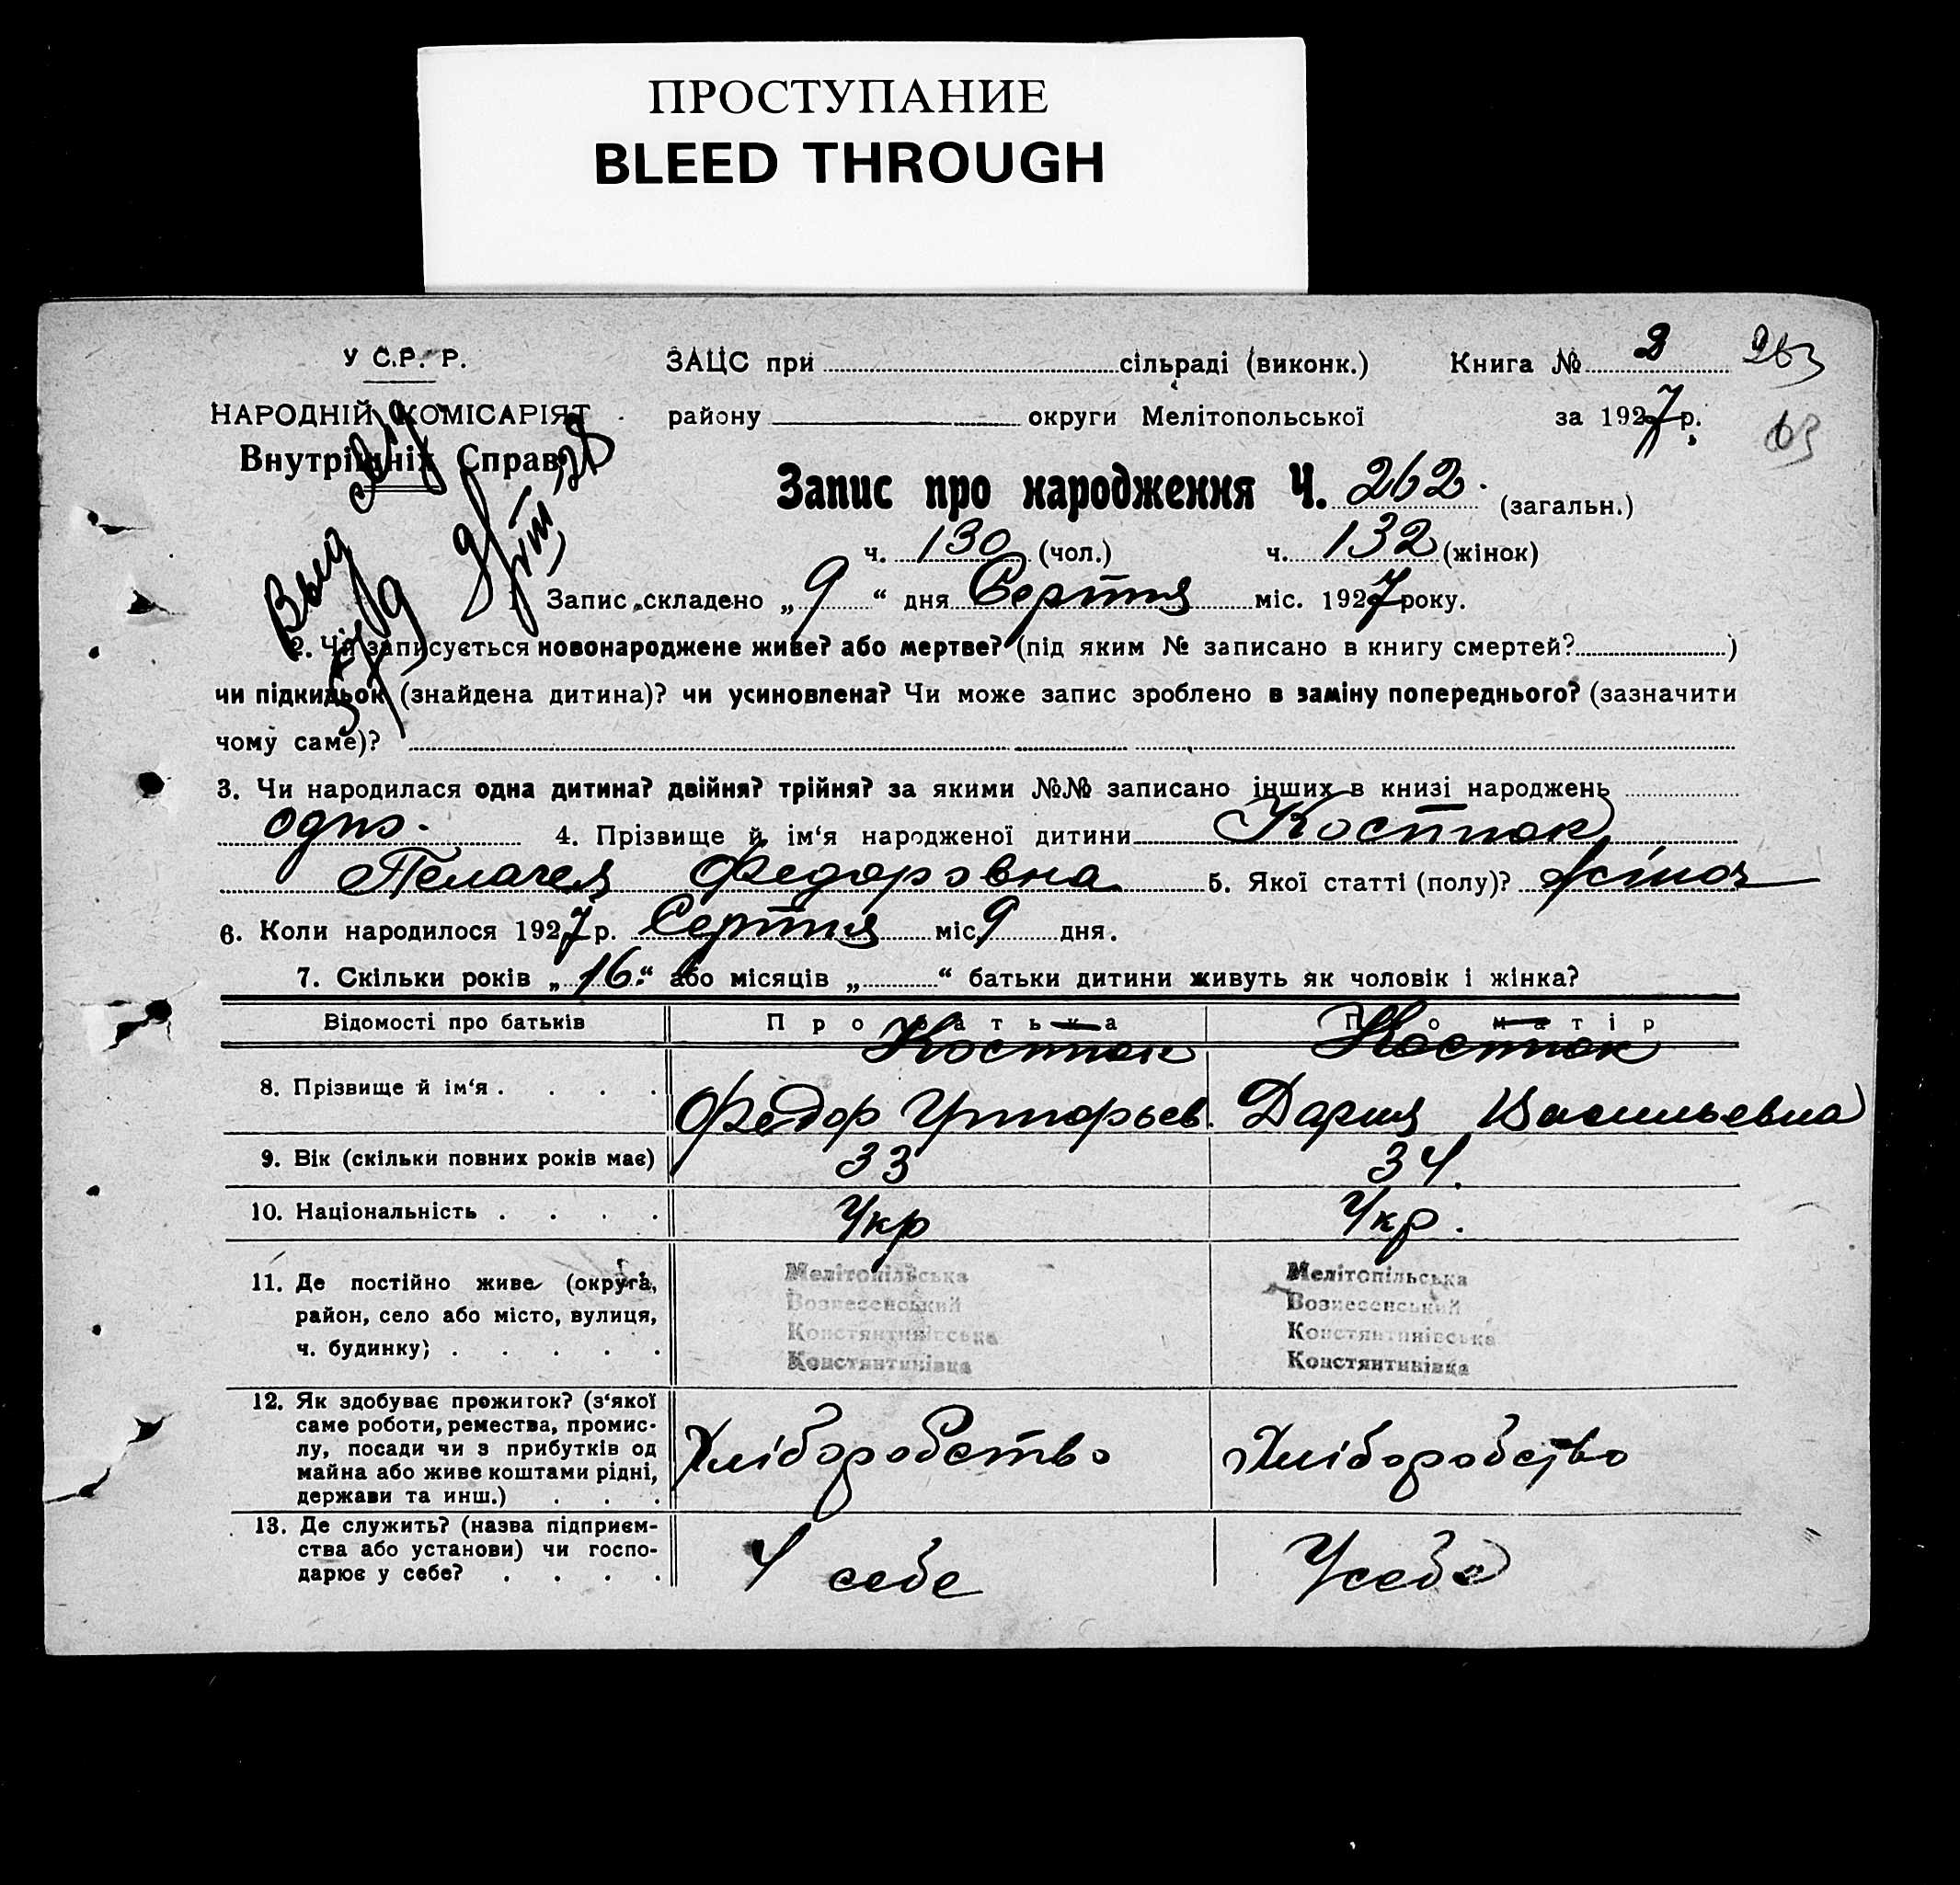 ПРОСТУПАНИЕ
BLEED THROUGH
У С.Р. Р. ЗАЦС при сільраді (виконк.) Книга № 2 263
НАРОДНІЙ КОМІСАРІЯТ району округи Мелітопольської за 1927 р. 63
Внутрішніх Справ
Запис про народження Ч. 262. (загальн.)
ч. 130 (чол.) ч. 132 (жінок)
Запис складено „ 9 “ дня Серпня міс. 1927 року.
2. Чи записується новонароджене живе? або мертве? (під яким № записано в книгу смертей? )
чи підкидьок (знайдена дитина)? чи усиновлена? Чи може запис зроблено в заміну попереднього? (зазначити
чому саме)?
3. Чи народилася одна дитина? двійня? трійня? за якими №№ записано інших в книзі народжень
одно. 4. Прізвище й ім‘я народженої дитини Костюк
Пелагея Федоровна 5. Якої статті (полу)? жіноч
6. Коли народилося 1927 р. Серпня міс. 9 дня.
7. Скільки років „ 16 “ або місяців „ “ батьки дитини живуть як чоловік і жінка?
Відомості про батьків Про батька Про матір
Костюк Костюк
8. Прізвище й ім‘я . . . . Федор Григорьев. Дария Васильевна
9. Вік (скільки повних років має) 33 34.
10. Національність . . . . Укр Укр.
11. Де постійно живе (округа, Мелітопільська Мелітопільська
район, село або місто, вулиця, Вознесенський Вознесенський
ч. будинку) . . . . . Констянтинівська Констянтинівська
Констянтинівка Констянтинівка
12. Як здобуває прожиток? (з‘якої
саме роботи, ремества, промис-
лу, посади чи з прибутків од Хліборобство Хліборобство
майна або живе коштами рідні,
держави та инш.) . . .
13. Де служить? (назва підприєм-
ства або установи) чи госпо- У себе У себе
дарює у себе? . . . .